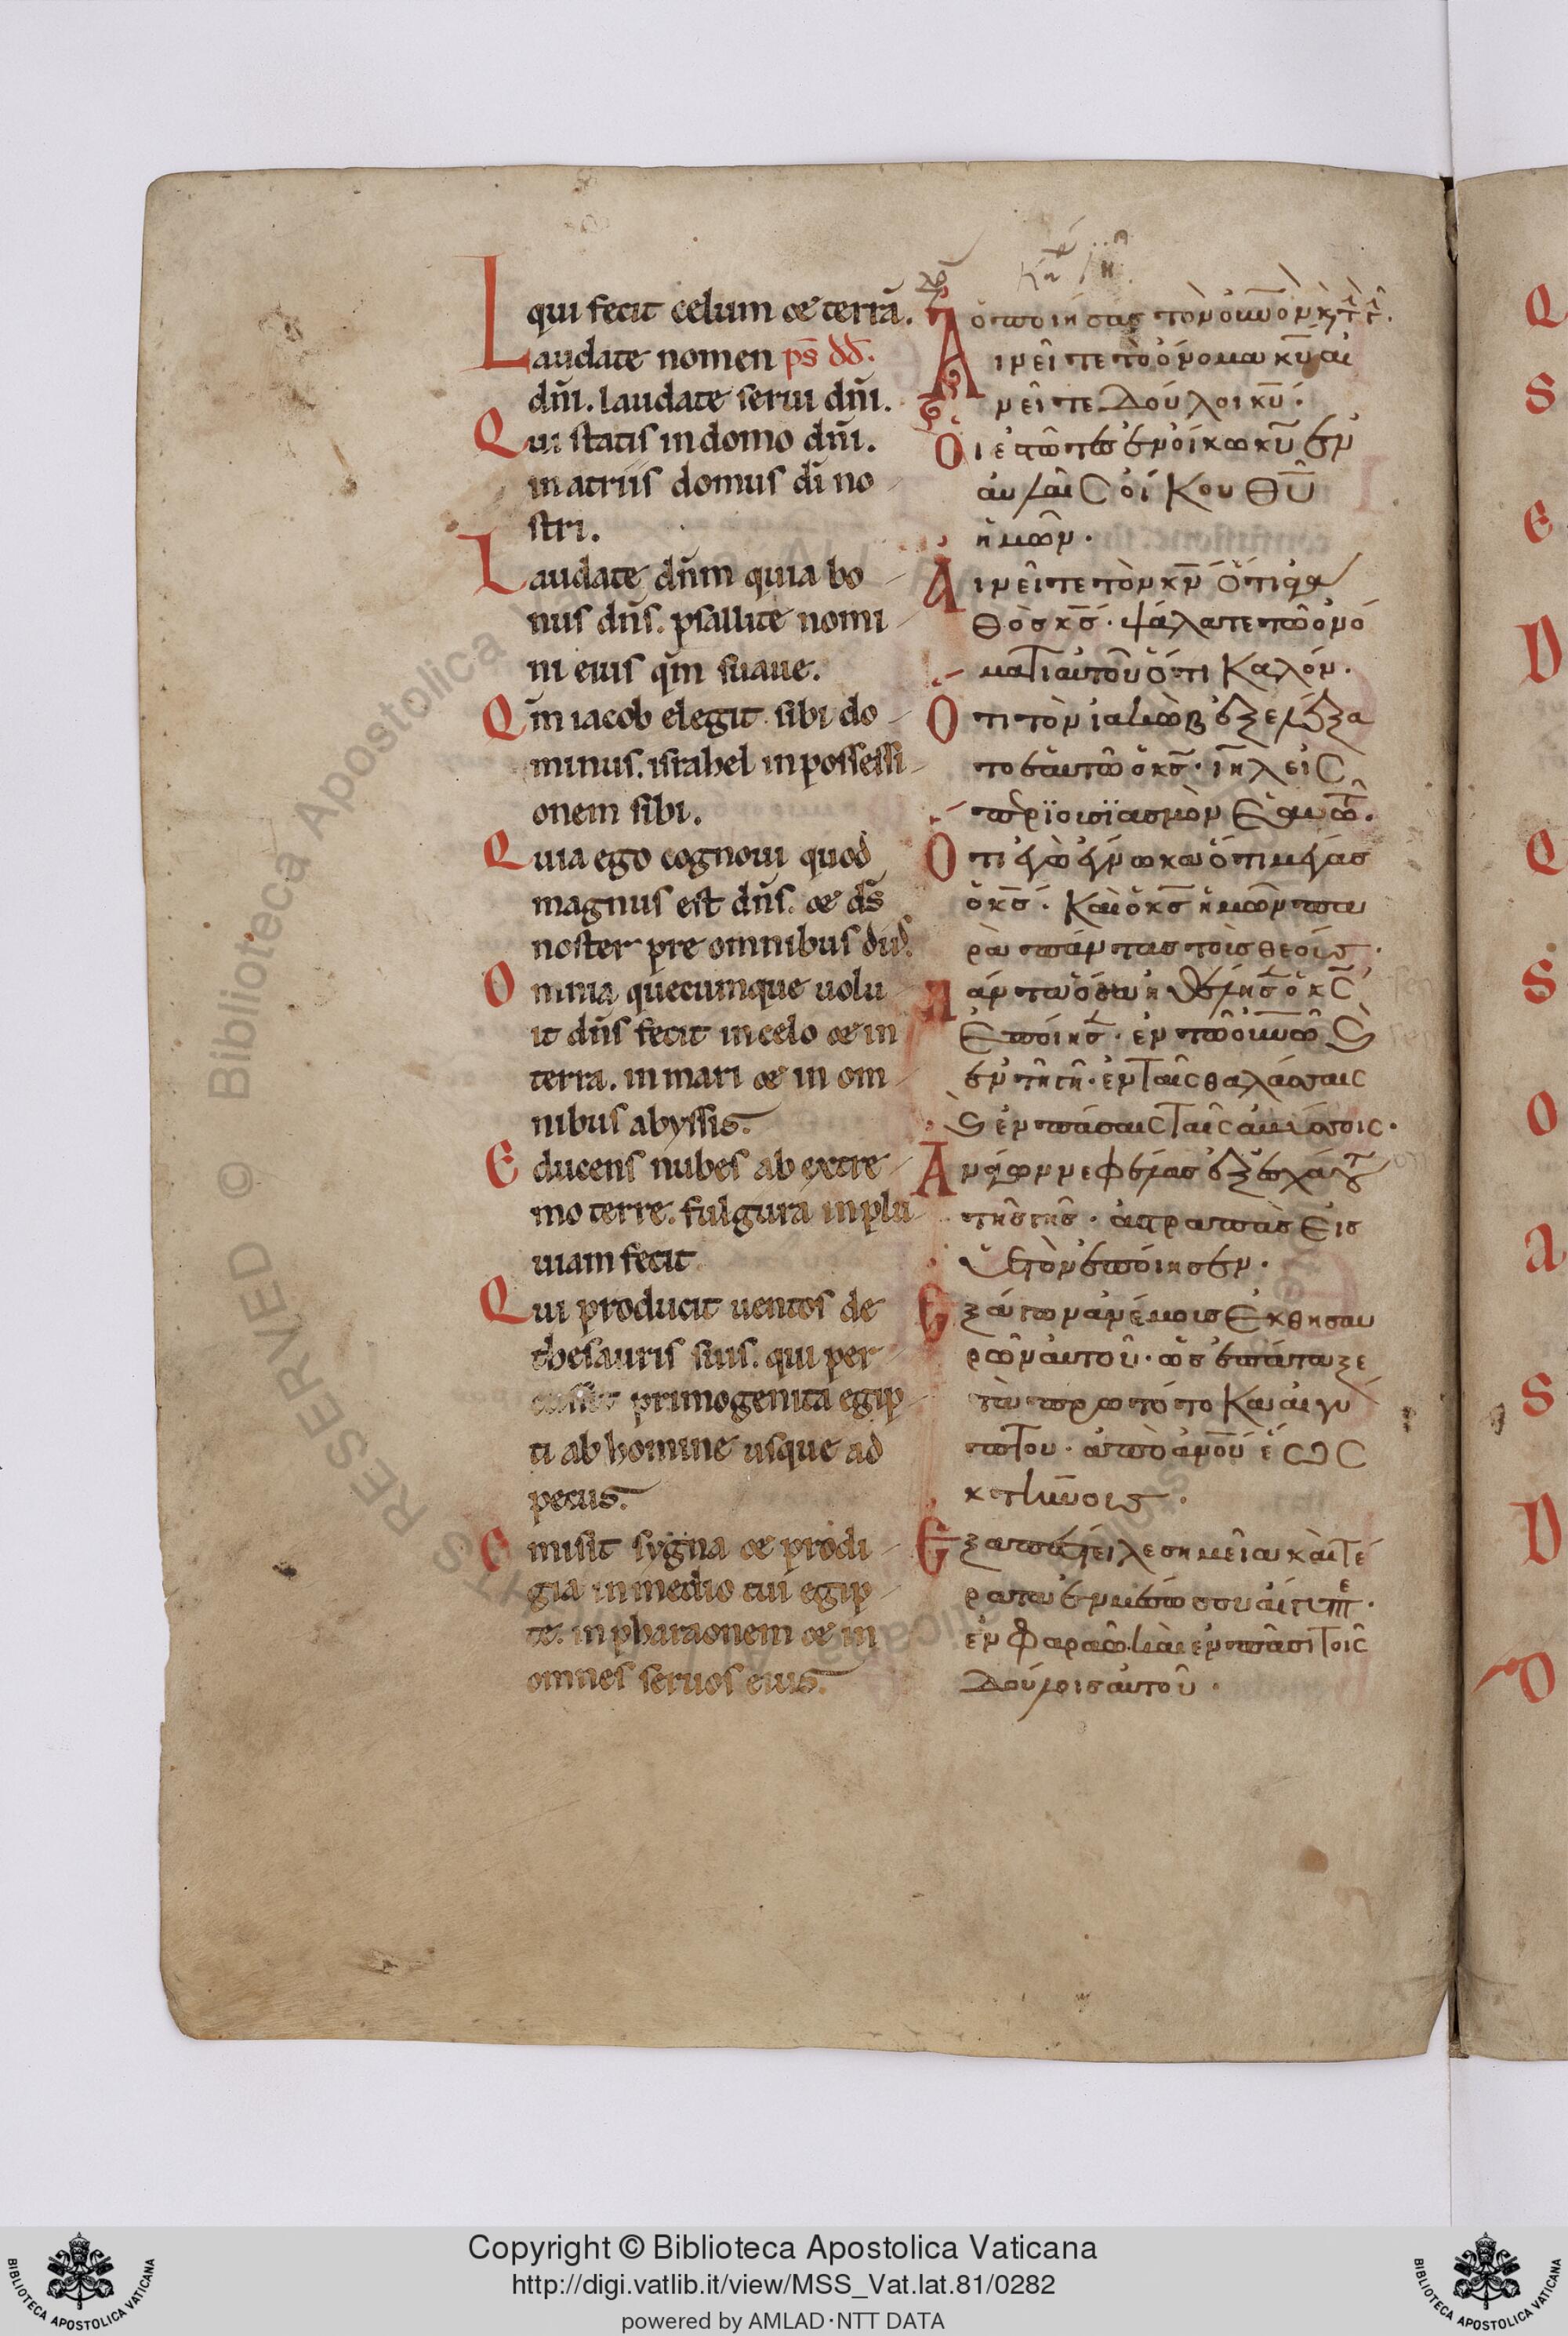 qui fecit celum & terrā.
Laudate nomen ps̄ dd̄.
dn̄i. laudate serui dn̄i.
Qui statis in domo dn̄i.
in atriis domus dī no
stri.
Laudate dn̄m quia bo
nus dn̄s. psallite nomi
ni eius qm̄ suaue.
Qm̄ iacob elegit sibi do
minus. israhel in possessi
onem sibi.
Quia ego cognoui quod
magnus est dn̄s. & ds̄
noster pre omnibus
Omnia quecumque uolu
it dn̄s fecit in celo & in
terra. in mari & in om
nibus abyssis.
Educens nubes ab extre
mo terre. fulgura in plu
uiam fecit
Qui producit uentos de
thesauris suis. qui per
cussit primogenita egip
ti ab homine usque ad
pecus.
Emisit sygna & prodi
gia in medio tui egip
te. in pharaonem & in
omnes seruos eius.
ὁ ποιήσας τὸν οὐν̅ὸν κ̀
Αἰνεῖτε τὸ ὄνομα κῡ αἰ
νεῖτε δούλοι κῡ.
Οἱ ἑστῶτες ἐν οἴκω κῡ ἐν
αυλαῖς οἴκου θῡ
ἡμῶν.
Αἰνεῖτε τὸν κν̄ ὅτι αγα
θὸσ κς̄. ψάλατε τῶ ὀνό
ματι αυτοῦ ὅτι καλόν.
Οτι τὸν ἰακὼβ ἐξελέξα
το ἑαυτῶ ὁ κς̄. ιη̄λ εἰς
περϊουσϊασμὸν ἑαυτῶ.
Οτι ἐγὼ ἔγνωκα ὅτι μέγασ
ὁ κς̄. καὶ ὁ κς̄ ἡμῶν πα
ρὰ πάντας τοὺσ θεούς.
Πάντα ὅσα ἠθέλησ ὁ κς̄
ἐποίησ. ἐν τῶ οὐν̅ῶ κ̀
ἐν τῆ γῆ. ἐν ταῖς θαλάσσαις
κ̀ ἐν πάσαις ταῖς ἀβύσσοις.
Ανάγων νεφέλασ ἐξ ἐσχάτου
τῆς γῆς. ἀστραπὰς εἰς
ὑετὸν ἐποίησεν.
Εξάγων ἀνέμους ἐκ θησαυ
ρῶν αὐτοῦ. ὃσ ἐπάταξε
τὰ πρωτότοκα αἰγύ
πτου. ἀπὸ ἀνοῡ ἕως
κτήνους.
Εξαπέστειλε σημεῖα καὶ τέ
ρατα ἐν μέσω σου αἴγυπτε.
ἐν φαραὼ καὶ ἐν πᾶσι τοῖς
δούλοισ αυτοῦ.
Biblioteca Apostolica
RESERVED ©
Copyright © Biblioteca Apostolica Vaticana
http://digi.vatlib.it/view/MSS_Vat.lat.81/0282
powered by AMLAD·NTT DATA
BIBLIOTECA APOSTOLICA VATICANA
BIBLIOTECA APOSTOLICA VATICANA